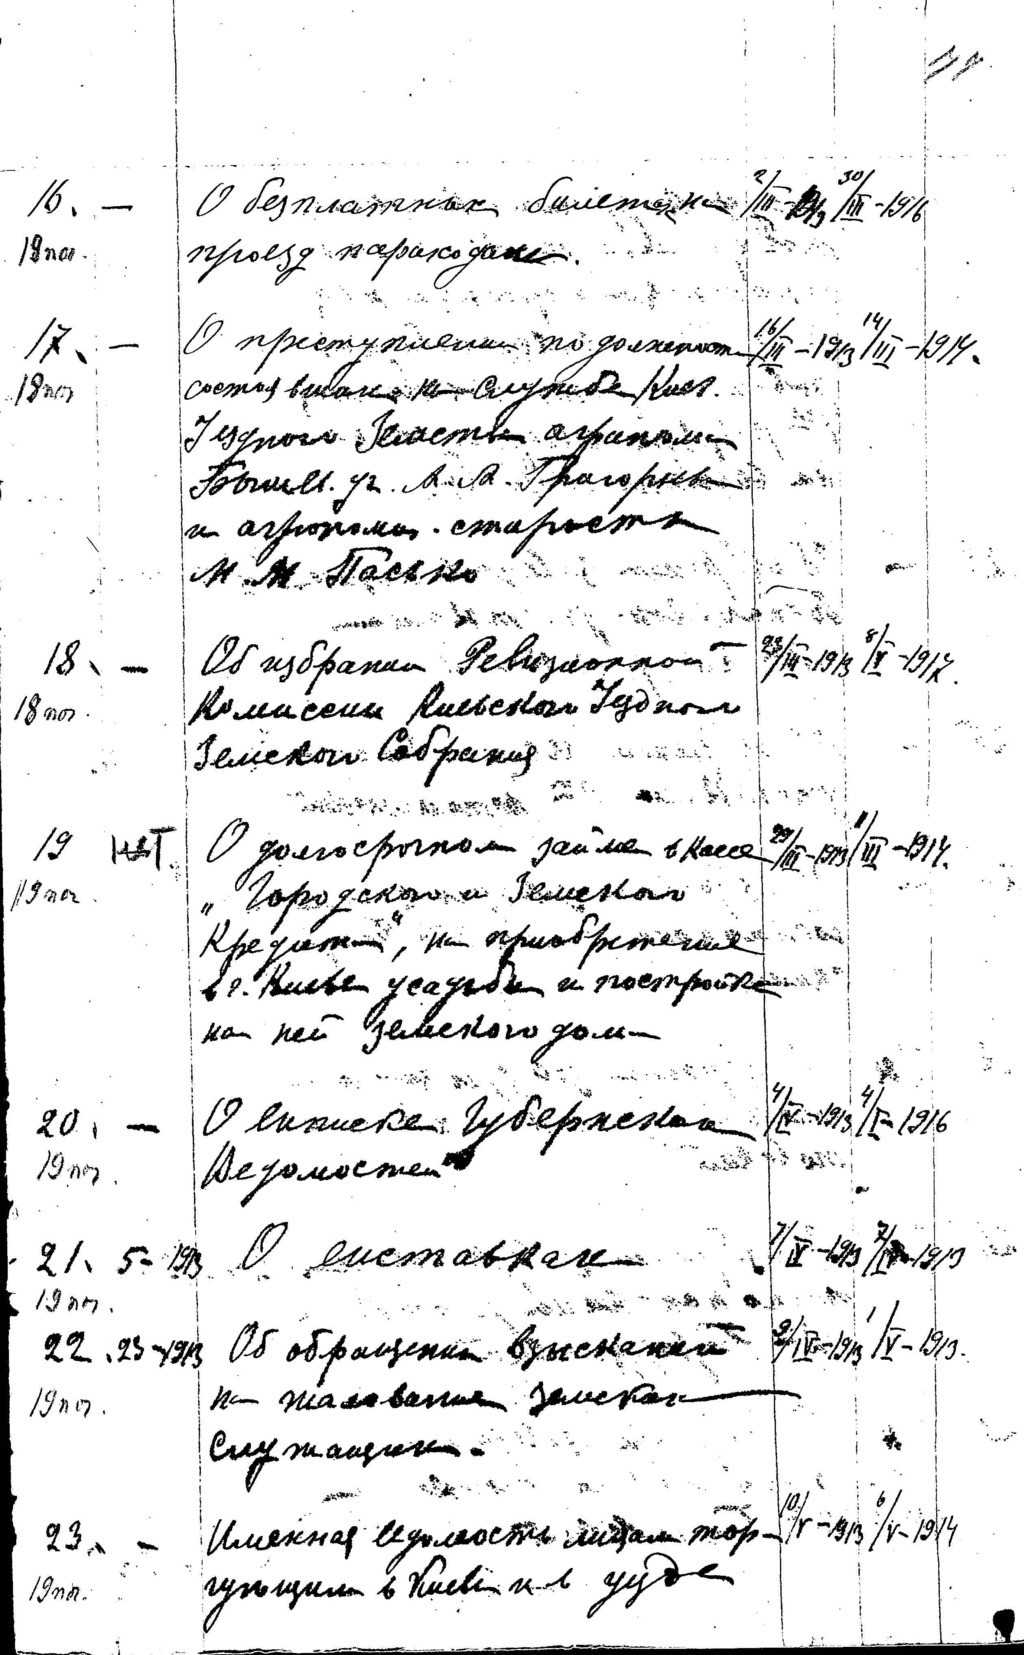 16. — О безплатных билетах на 2/III-1913 30/III-1916
18 пог. проезд пароходами.
17. — О преступлении по должности 16/III-1913 14/III-1914.
18 пог состоявших на службе Киев.
Уездного Земства агронома
уч. А. А. Григорьева
и агронома-старосты
М. М. Пасько
18. — Об избрании Ревизионной 23/III-1913 8/V-1917.
18 пог. Комиссии Киевского Уездного
Земского Собрания
19 НЕТ. О долгосрочном займе в Кассе 29/III-1913 11/III-1914.
19 пог. „Городского и Земского
Кредита", на приобретение
в г. Киеве усадьбы и постройке
на ней земского дома
20. — О выписке Губернских 4/IV-1913 4/I-1916
19 пог. Ведомостей
21. 5-1913 О выставках 7/IV-1913
19 пог.
22. 23-1913 Об обращении взысканий 9/IV-1913 1/V-1913.
19 пог. на жалование земских
служащих.
23. — Именная ведомость лицам тор- 10/V-1913 6/V-1914
19 пог. гующим в Киеве и в уезде